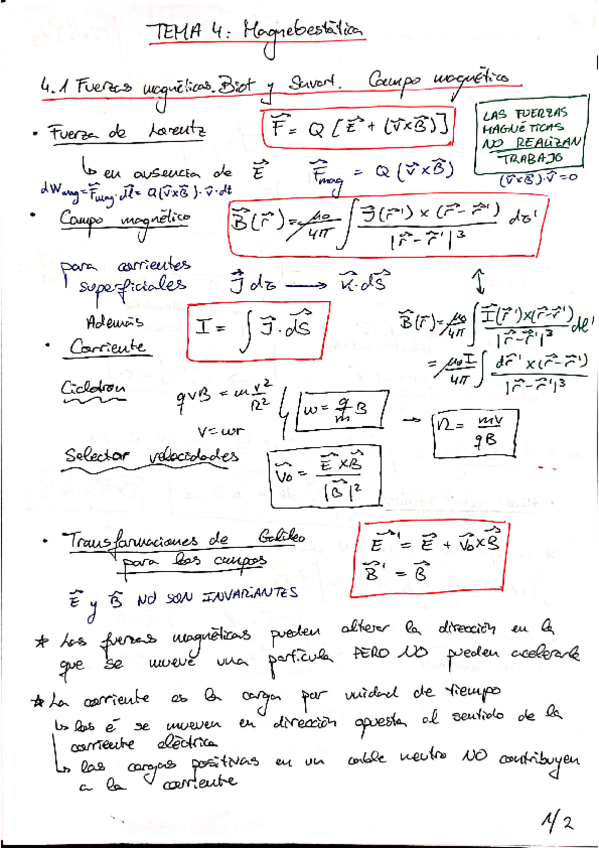 TEMA 4: Magnetostática
4.1 Fuerzas magnéticas. Biot y Savart. Campo magnético
• Fuerza de Lorentz
F⃗ = Q [E⃗ + (v⃗ × B⃗)]
LAS FUERZAS
MAGNÉTICAS
NO REALIZAN
TRABAJO
(v⃗×B⃗)·v⃗ = 0
↳ en ausencia de E⃗ F⃗mag = Q (v⃗ × B⃗)
dWmag = F⃗mag · dl⃗ = Q(v⃗×B⃗)·v⃗·dt
• Campo magnético
B⃗(r⃗) = μ₀/4π ∫ J⃗(r⃗') × (r⃗ - r⃗') / |r⃗ - r⃗'|³ dτ'
para corrientes
superficiales J⃗ dτ → K⃗·dS
↕
B⃗(r⃗) = μ₀/4π ∫ I⃗(r⃗')×(r⃗-r⃗') / |r⃗-r⃗'|³ dl'
= μ₀I/4π ∫ dr⃗' × (r⃗-r⃗') / |r⃗-r⃗'|³
Además
• Corriente
I = ∫ J⃗ · dS⃗
Ciclotron qvB = m v²/R² ω = q/m B → R = mv/qB
v = ωr
Selector velocidades v⃗₀ = E⃗ × B⃗ / |B⃗|²
• Transformaciones de Galileo
para los campos
E⃗' = E⃗ + v⃗₀ × B⃗
B⃗' = B⃗
E⃗ y B⃗ NO SON INVARIANTES
* Las fuerzas magnéticas pueden alterar la dirección en la
que se mueve una partícula PERO NO pueden acelerarle
* La corriente es la carga por unidad de tiempo
↳ los é se mueven en dirección opuesta al sentido de la
corriente eléctrica
↳ las cargas positivas en un cable neutro NO contribuyen
a la corriente
1/2